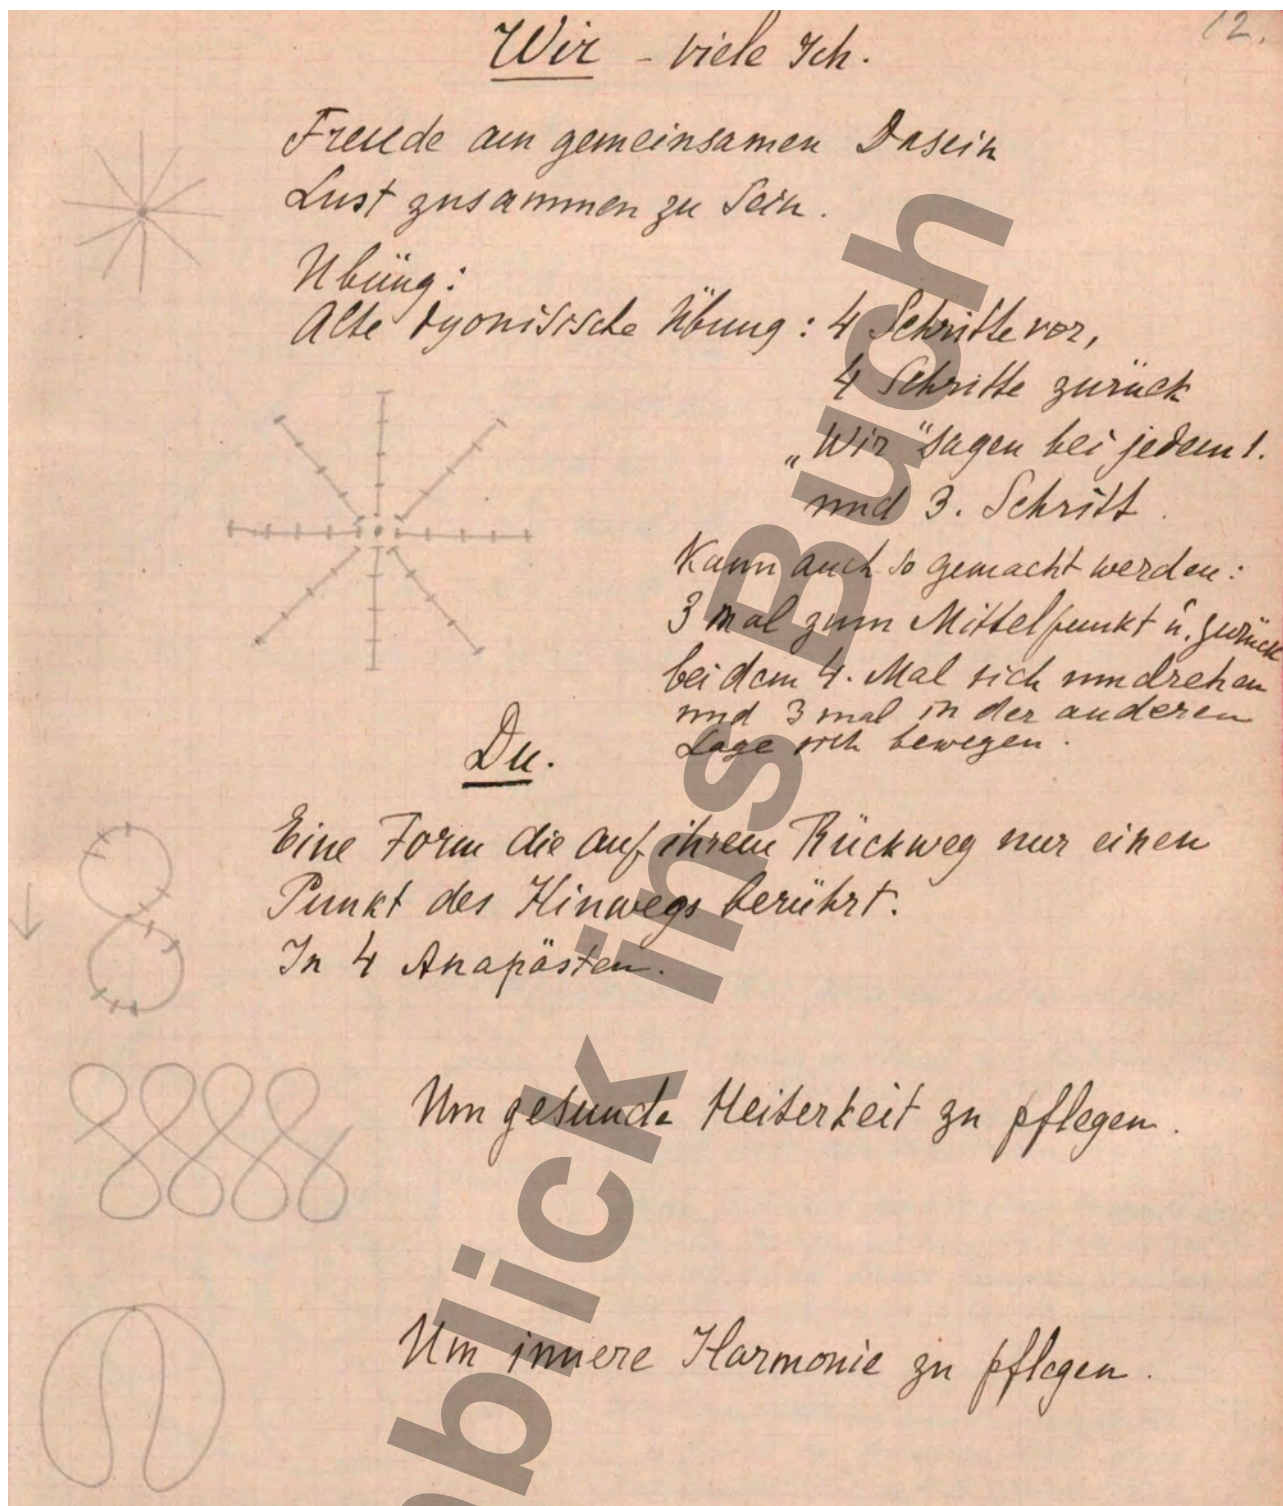 12.
Wir - viele Ich.
Freude am gemeinsamen Dasein
Lust zusammen zu sein.
Übung:
Alte dyonisische Übung: 4 Schritte vor,
4 Schritte zurück
„Wir" sagen bei jedem 1.
und 3. Schritt.
Kann auch so gemacht werden:
3 mal zum Mittelpunkt u. zurück
bei dem 4. Mal sich umdrehen
und 3 mal in der anderen
Lage sich bewegen.
Du.
Eine Form die auf ihrem Rückweg nur einen
Punkt des Hinwegs berührt.
In 4 Anapästen.
Um gesunde Heiterkeit zu pflegen.
Um innere Harmonie zu pflegen.
blick ins Buch